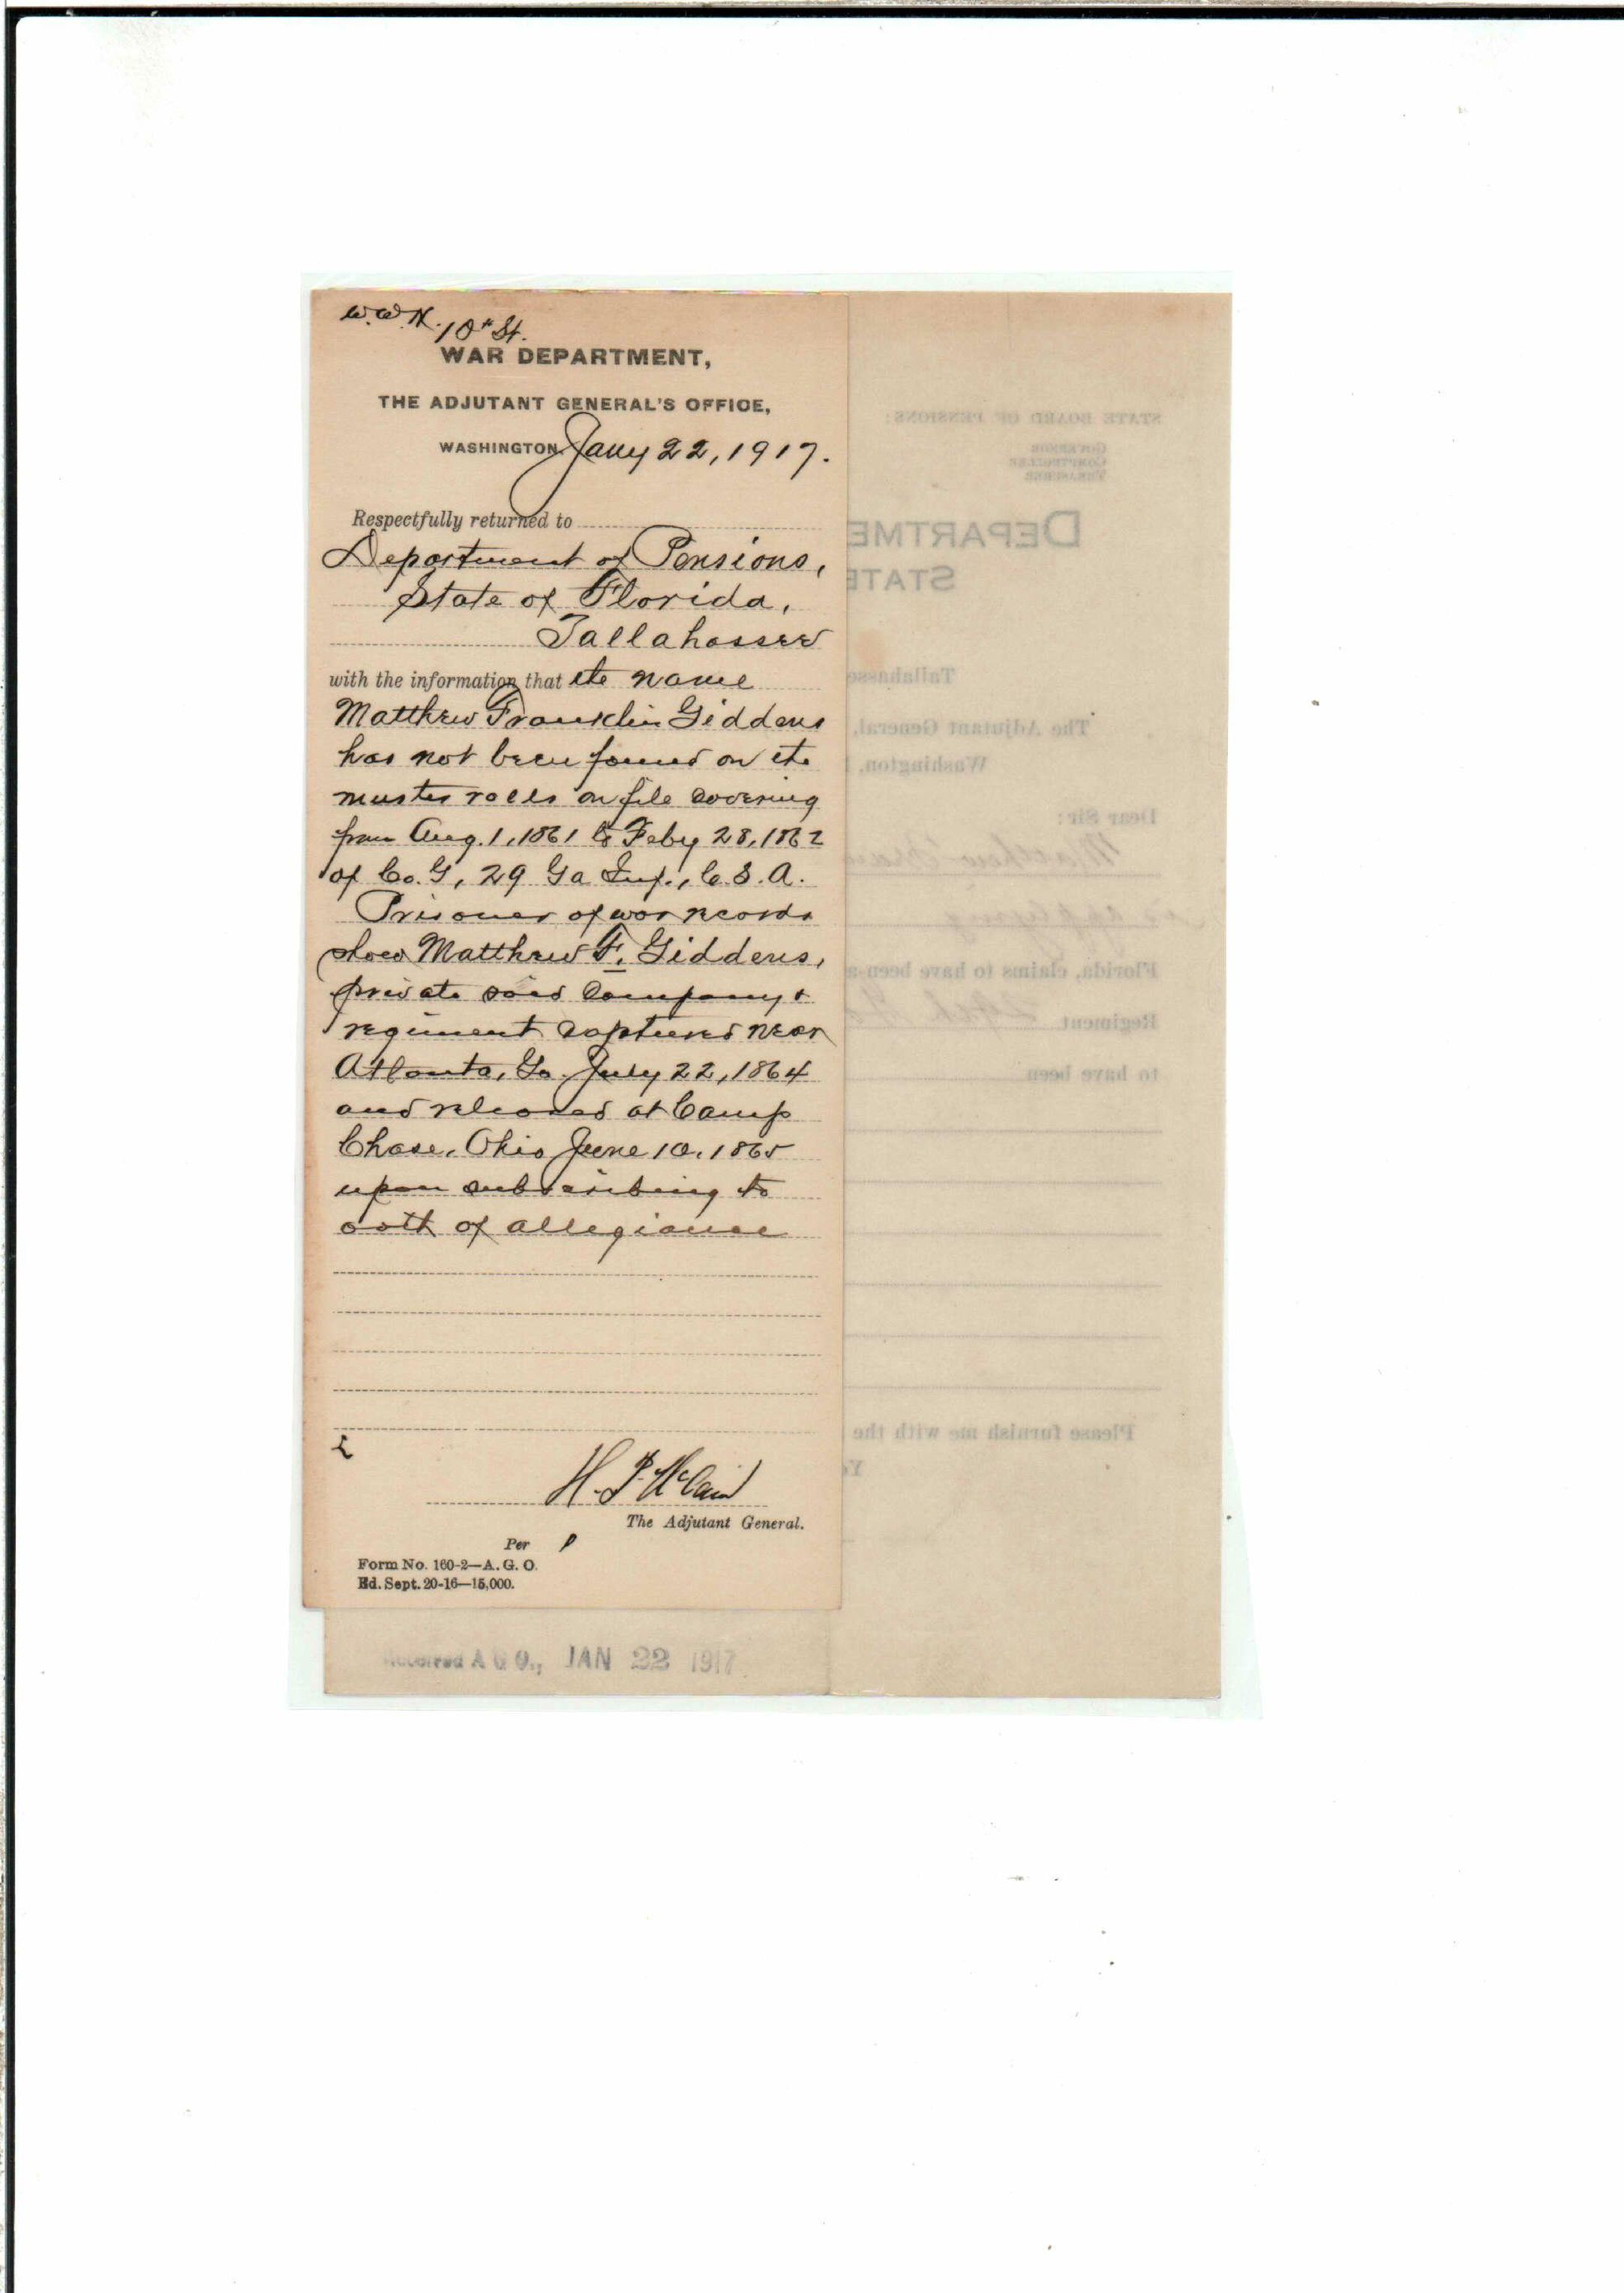 W.W.N. 10th St.
WAR DEPARTMENT,
THE ADJUTANT GENERAL'S OFFICE,
WASHINGTON, Jany 22, 1917.
Respectfully returned to
Department of Pensions,
State of Florida,
Tallahassee
with the information that the name
Matthew Franklin Giddens
has not been found on the
muster rolls on file covering
from Aug. 1, 1861 to Feby 28, 1862
of Co. G, 29 Ga Inf., C.S.A.
Prisoner of war records
show Matthew F. Giddens,
private said Company &
regiment captured near
Atlanta, Ga. July 22, 1864
and released at Camp
Chase, Ohio June 10, 1865
upon subscribing to
oath of allegiance
H. P. McCain
The Adjutant General.
Per
Form No. 160-2—A. G. O.
Ed. Sept. 20-16—15,000.
Received A G O., JAN 22 1917
STATE BOARD OF PENSIONS:
GOVERNOR
COMPTROLLER
TREASURER
DEPARTME
STATE
Tallahasse
The Adjutant General,
Washington,
Dear Sir:
Matthew Fran
is applying
Florida, claims to have been a
Regiment 29th Ga
to have been
Please furnish me with the